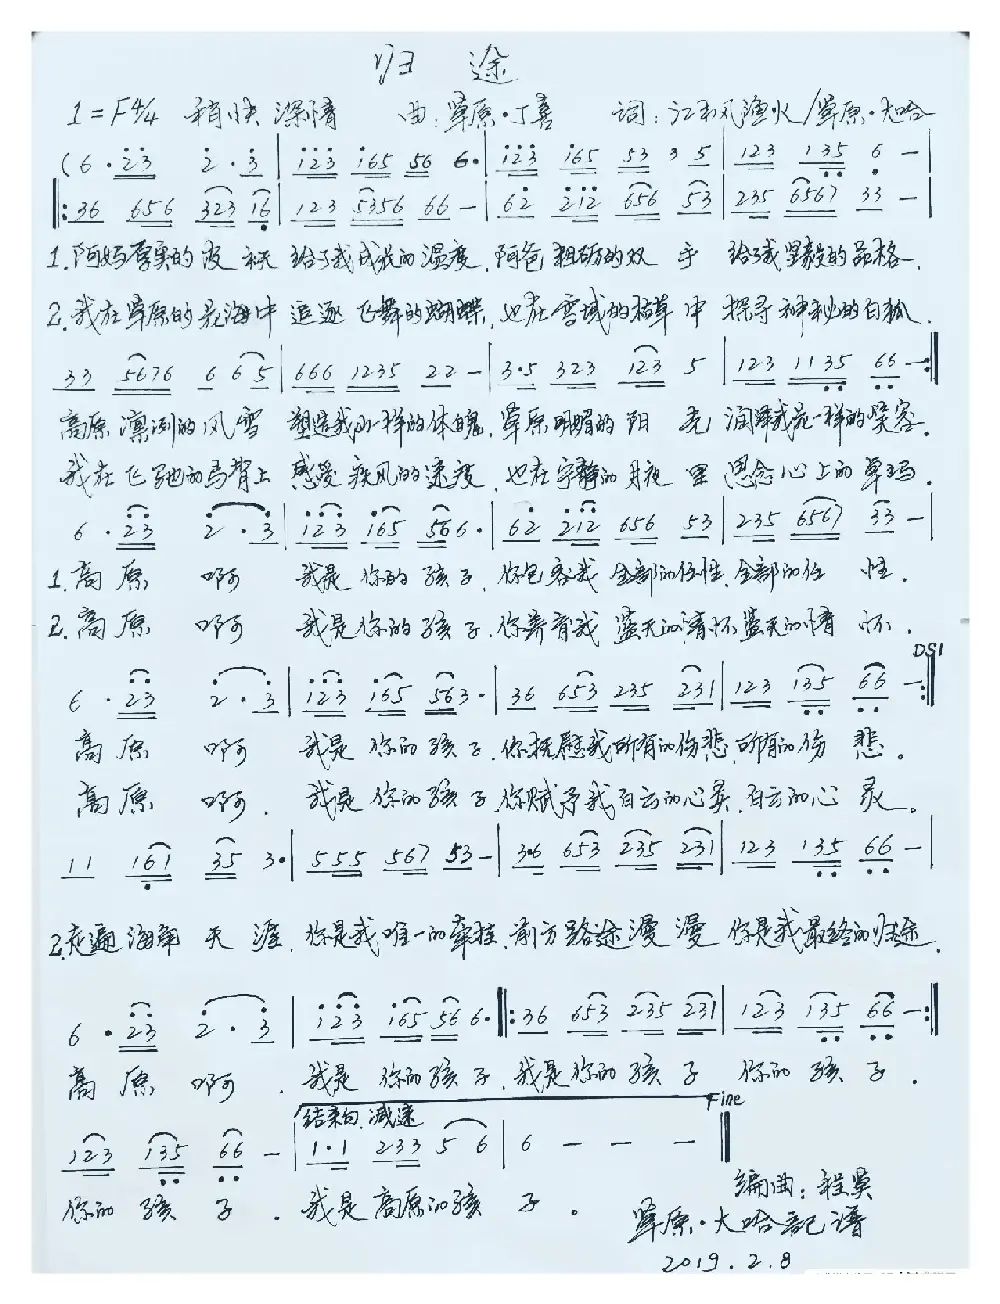 归 途
1=F4/4 稍快 深情 曲:草原·丁喜 词:江枫渔火/草原·大哈
(6·23 2·3 | 123 165 56 6· | 123 165 53 3 5 | 123 135 6 — |
‖: 36 656 323 16 | 123 5356 66 — | 62 212 656 53 | 235 6567 33 — |
1.阿妈厚实的皮袄 给了我成长的温度,阿爸粗砺的双 手 给了我坚毅的品格.
2.我在草原的花海中 追逐飞舞的蝴蝶,也在雪域的枯草中 探寻神秘的白狐.
33 5676 6 65 | 666 1235 22 — | 3·5 323 123 5 | 123 1135 66 — :‖
高原 凛冽的风雪 塑造我山一样的体魄,草原明媚的阳 光 润泽我花一样的笑容.
我在飞驰的马背上 感受疾风的速度,也在宁静的月夜 里 思念心上的卓玛.
6·23 2·3 | 123 165 56 6· | 62 212 656 53 | 235 6567 33 — |
1.高 原 啊 我是 你的 孩 子,你包容我 全部的任性,全部的任 性.
2.高 原 啊 我是 你的 孩 子,你养育我 蓝天的情怀蓝天的情 怀.
DS1
6·23 2·3 | 123 165 563· | 36 653 235 231 | 123 135 66 — :‖
高 原 啊 我是 你的 孩 子,你抚慰我所有的伤悲,所有的伤 悲。
高 原 啊. 我是 你的 孩 子,你赋予我白云的心灵,白云的心 灵。
11 161 35 3· | 555 567 53 — | 3·6 653 235 231 | 123 135 66 — |
2.走遍 海角 天 涯,你是我唯一的牵挂,前方路途漫 漫 你是我最终的归途.
6·23 2·3 | 123 165 56 6· ‖: 36 653 235 231 | 123 135 66 — :‖
高 原 啊 . 我是 你的 孩 子,我是 你的 孩 子 你的 孩 子.
结束句,减速 Fine
123 135 66 — | 1·1 233 5 6 | 6 — — — ‖
你的 孩 子 . 我是 高原的孩 子 。
编曲:程昊
草原·大哈記谱
2019.2.8